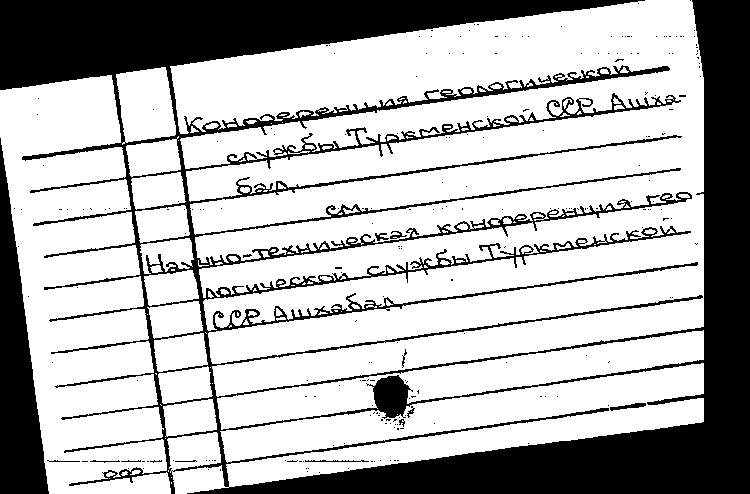 Конференция геологической
службы Туркменской ССР. Ашха-
бад.
см.
Научно-техническая конференция гео-
логической службы Туркменской
ССР. Ашхабад
оф